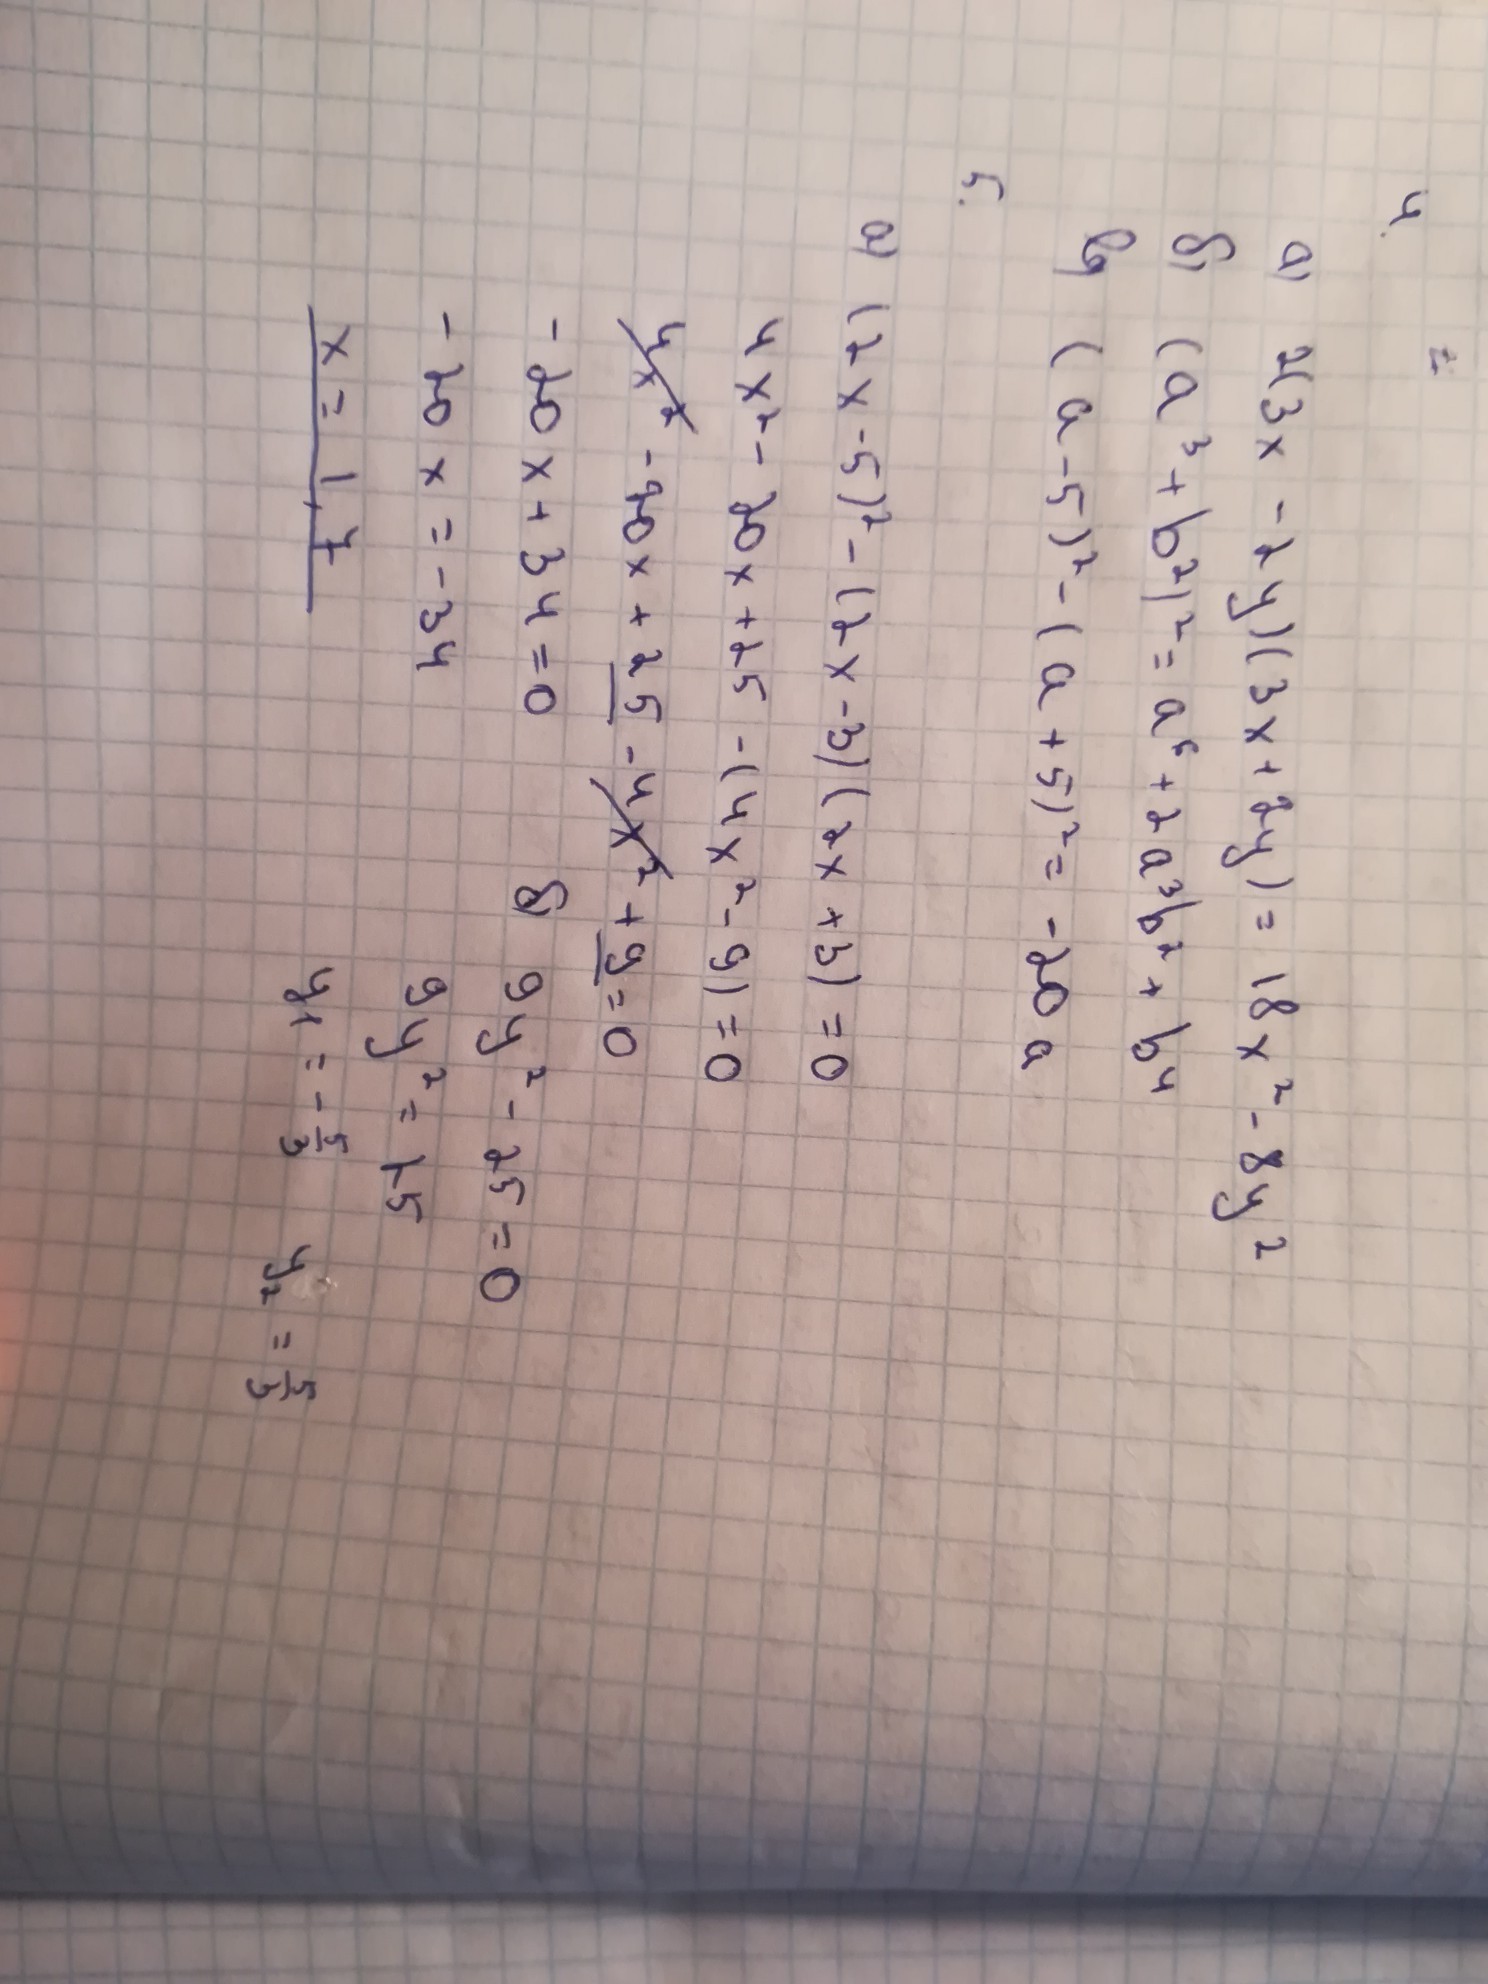 =
4.
а) 2(3x - 2y)(3x + 2y) = 18x² - 8y²
б) (a³ + b²)² = a⁶ + 2a³b² + b⁴
в) (a - 5)² - (a + 5)² = -20a
5.
а) (2x - 5)² - (2x - 3)(2x + 3) = 0
4x² - 20x + 25 - (4x² - 9) = 0
4x² - 20x + 25 - 4x² + 9 = 0
-20x + 34 = 0
-20x = -34
x = 1,7
б) 9y² - 25 = 0
9y² = 25
y₁ = -5/3 y₂ = 5/3